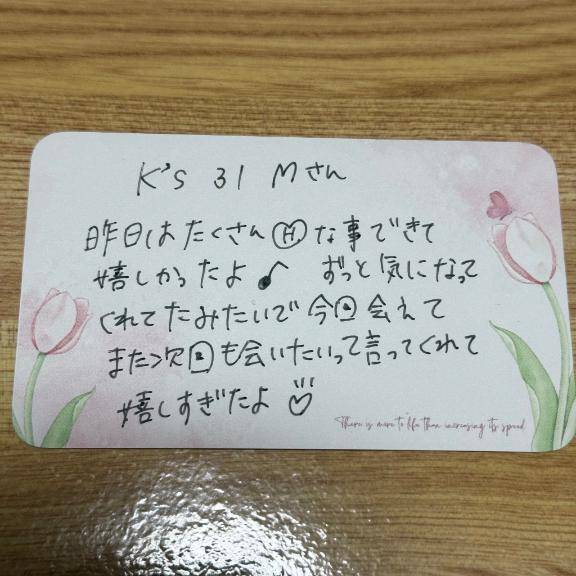 K's 31 Mさん
昨日はたくさんⒽな事できて
嬉しかったよ♪ ずっと気になって
くれてたみたいで今回会えて
また次回も会いたいって言ってくれて
嬉しすぎたよ♡
There is more to life than increasing its speed